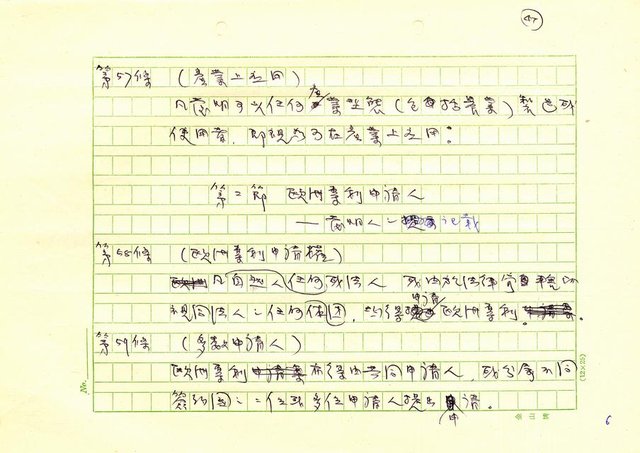 47
第57條 (產業上利用)
凡發明可以任何產業型態(包括農業)製造或
使用者，即視為可在產業上利用。
第二節 歐洲專利申請人
發明人之 記載
第58條 (歐洲專利申請權)
凡自然人任何或法人 或 於法律
視同法人之任何団，均得申請歐洲專利。
第59條 (多數申請人)
歐洲專利 亦得由共同申請人，或分屬不同
簽約國之二位或多位申請人提出申請。
No.
(12×25)
6